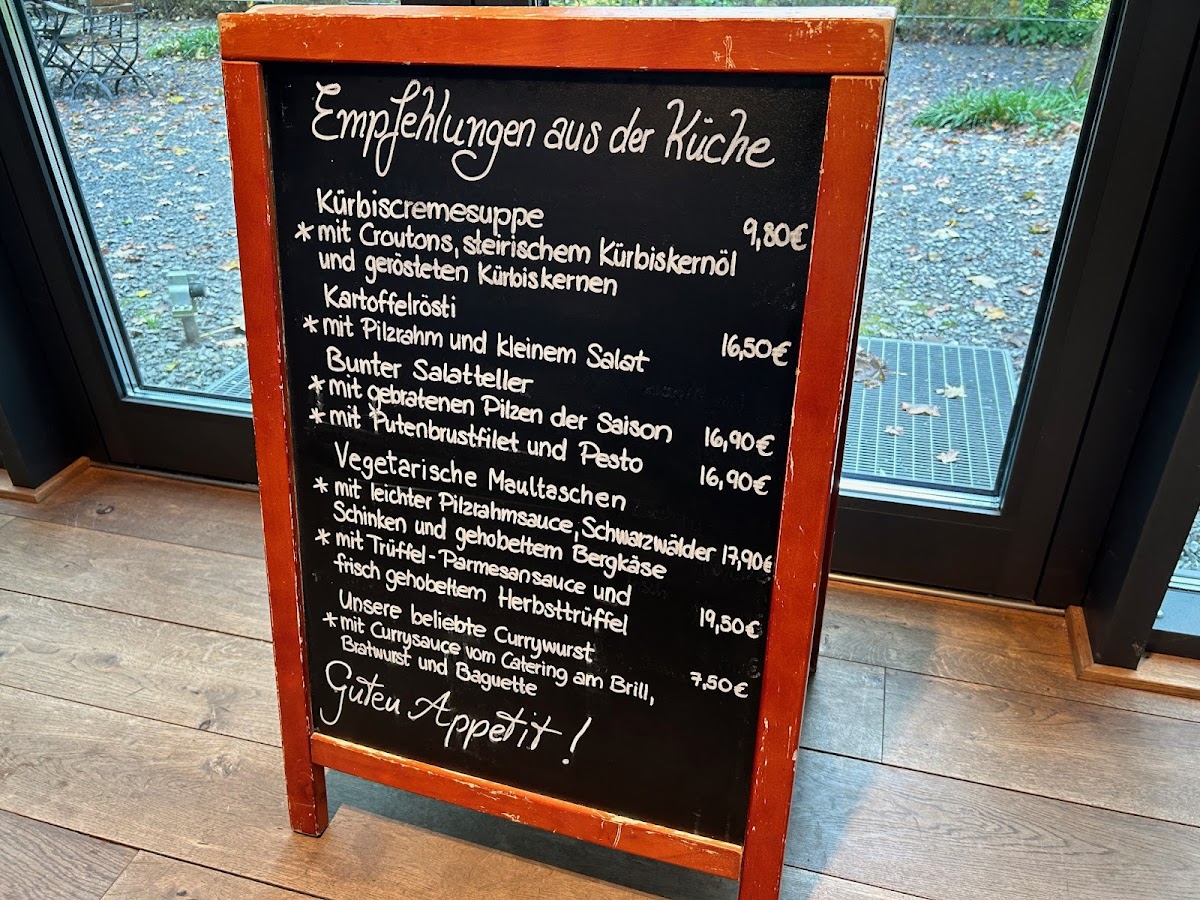 Empfehlungen aus der Küche
Kürbiscremesuppe
* mit Croutons, steirischem Kürbiskernöl 9,80€
und gerösteten Kürbiskernen
Kartoffelrösti
* mit Pilzrahm und kleinem Salat 16,50€
Bunter Salatteller
* mit gebratenen Pilzen der Saison 16,90€
* mit Putenbrustfilet und Pesto 16,90€
Vegetarische Maultaschen
* mit leichter Pilzrahmsauce, Schwarzwälder 17,90€
Schinken und gehobeltem Bergkäse
* mit Trüffel-Parmesansauce und
frisch gehobeltem Herbsttrüffel 19,50€
Unsere beliebte Currywurst
* mit Currysauce vom Catering am Brill, 7,50€
Bratwurst und Baguette
Guten Appetit!